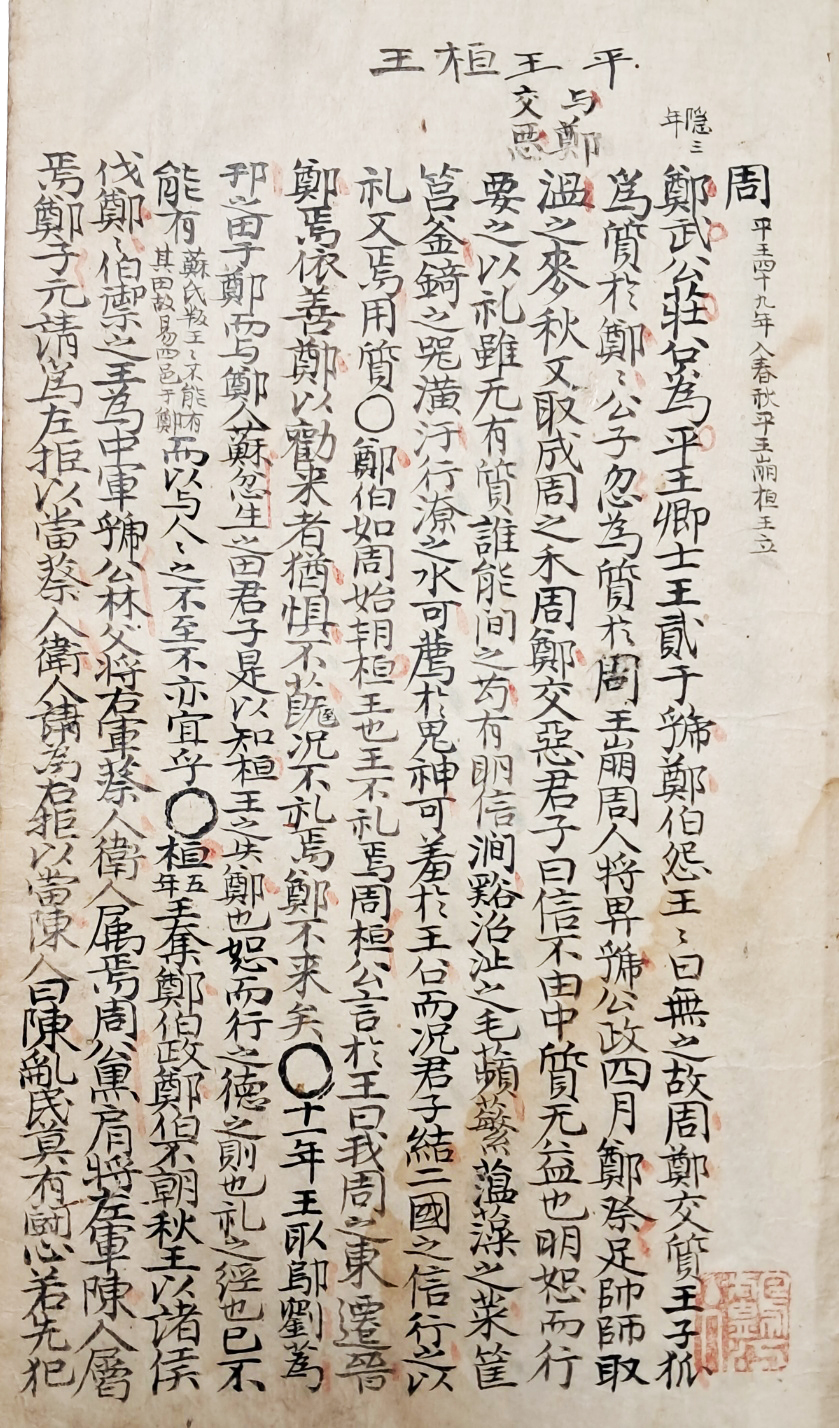 平王桓王
与鄭
交悪
隠三
年
周 平王四十九年入春秋平王崩桓王立
鄭武公莊公為平王卿士王貳于虢鄭伯怨王〻曰無之故周鄭交質王子狐
爲質於鄭〻公子忽為質於周王崩周人將畀虢公政四月鄭祭足帥師取
溫之麥秋又取成周之禾周鄭交惡君子曰信不由中質无益也明恕而行
要之以礼雖无有質誰能间之苟有明信澗谿沼沚之毛蘋蘩薀藻之菜筐
筥釜錡之器潢汙行潦之水可薦於鬼神可羞於王公而況君子結二國之信行之以
礼又焉用質〇鄭伯如周始朝桓王也王不礼焉周桓公言於王曰我周之東遷晉
鄭焉依善鄭以勸来者猶惧不蔇况不礼焉鄭不来矣〇十一年王取鄔劉蒍
邘之田于鄭而与鄭人蘇忿生之田君子是以知桓王之失鄭也恕而行之德之則也礼之經也己不
能有蘇氏叛王〻不能有其田故易四邑于鄭而以与人〻之不至不亦宜乎〇桓五年王奪鄭伯政鄭伯不朝秋王以諸侯
伐鄭〻伯禦之王為中軍虢公林父将右軍蔡人衛人属焉周公黒肩將左軍陳人屬
焉鄭子元請爲左拒以當蔡人衛人請為右拒以當陳人曰陳亂民莫有鬪心若先犯